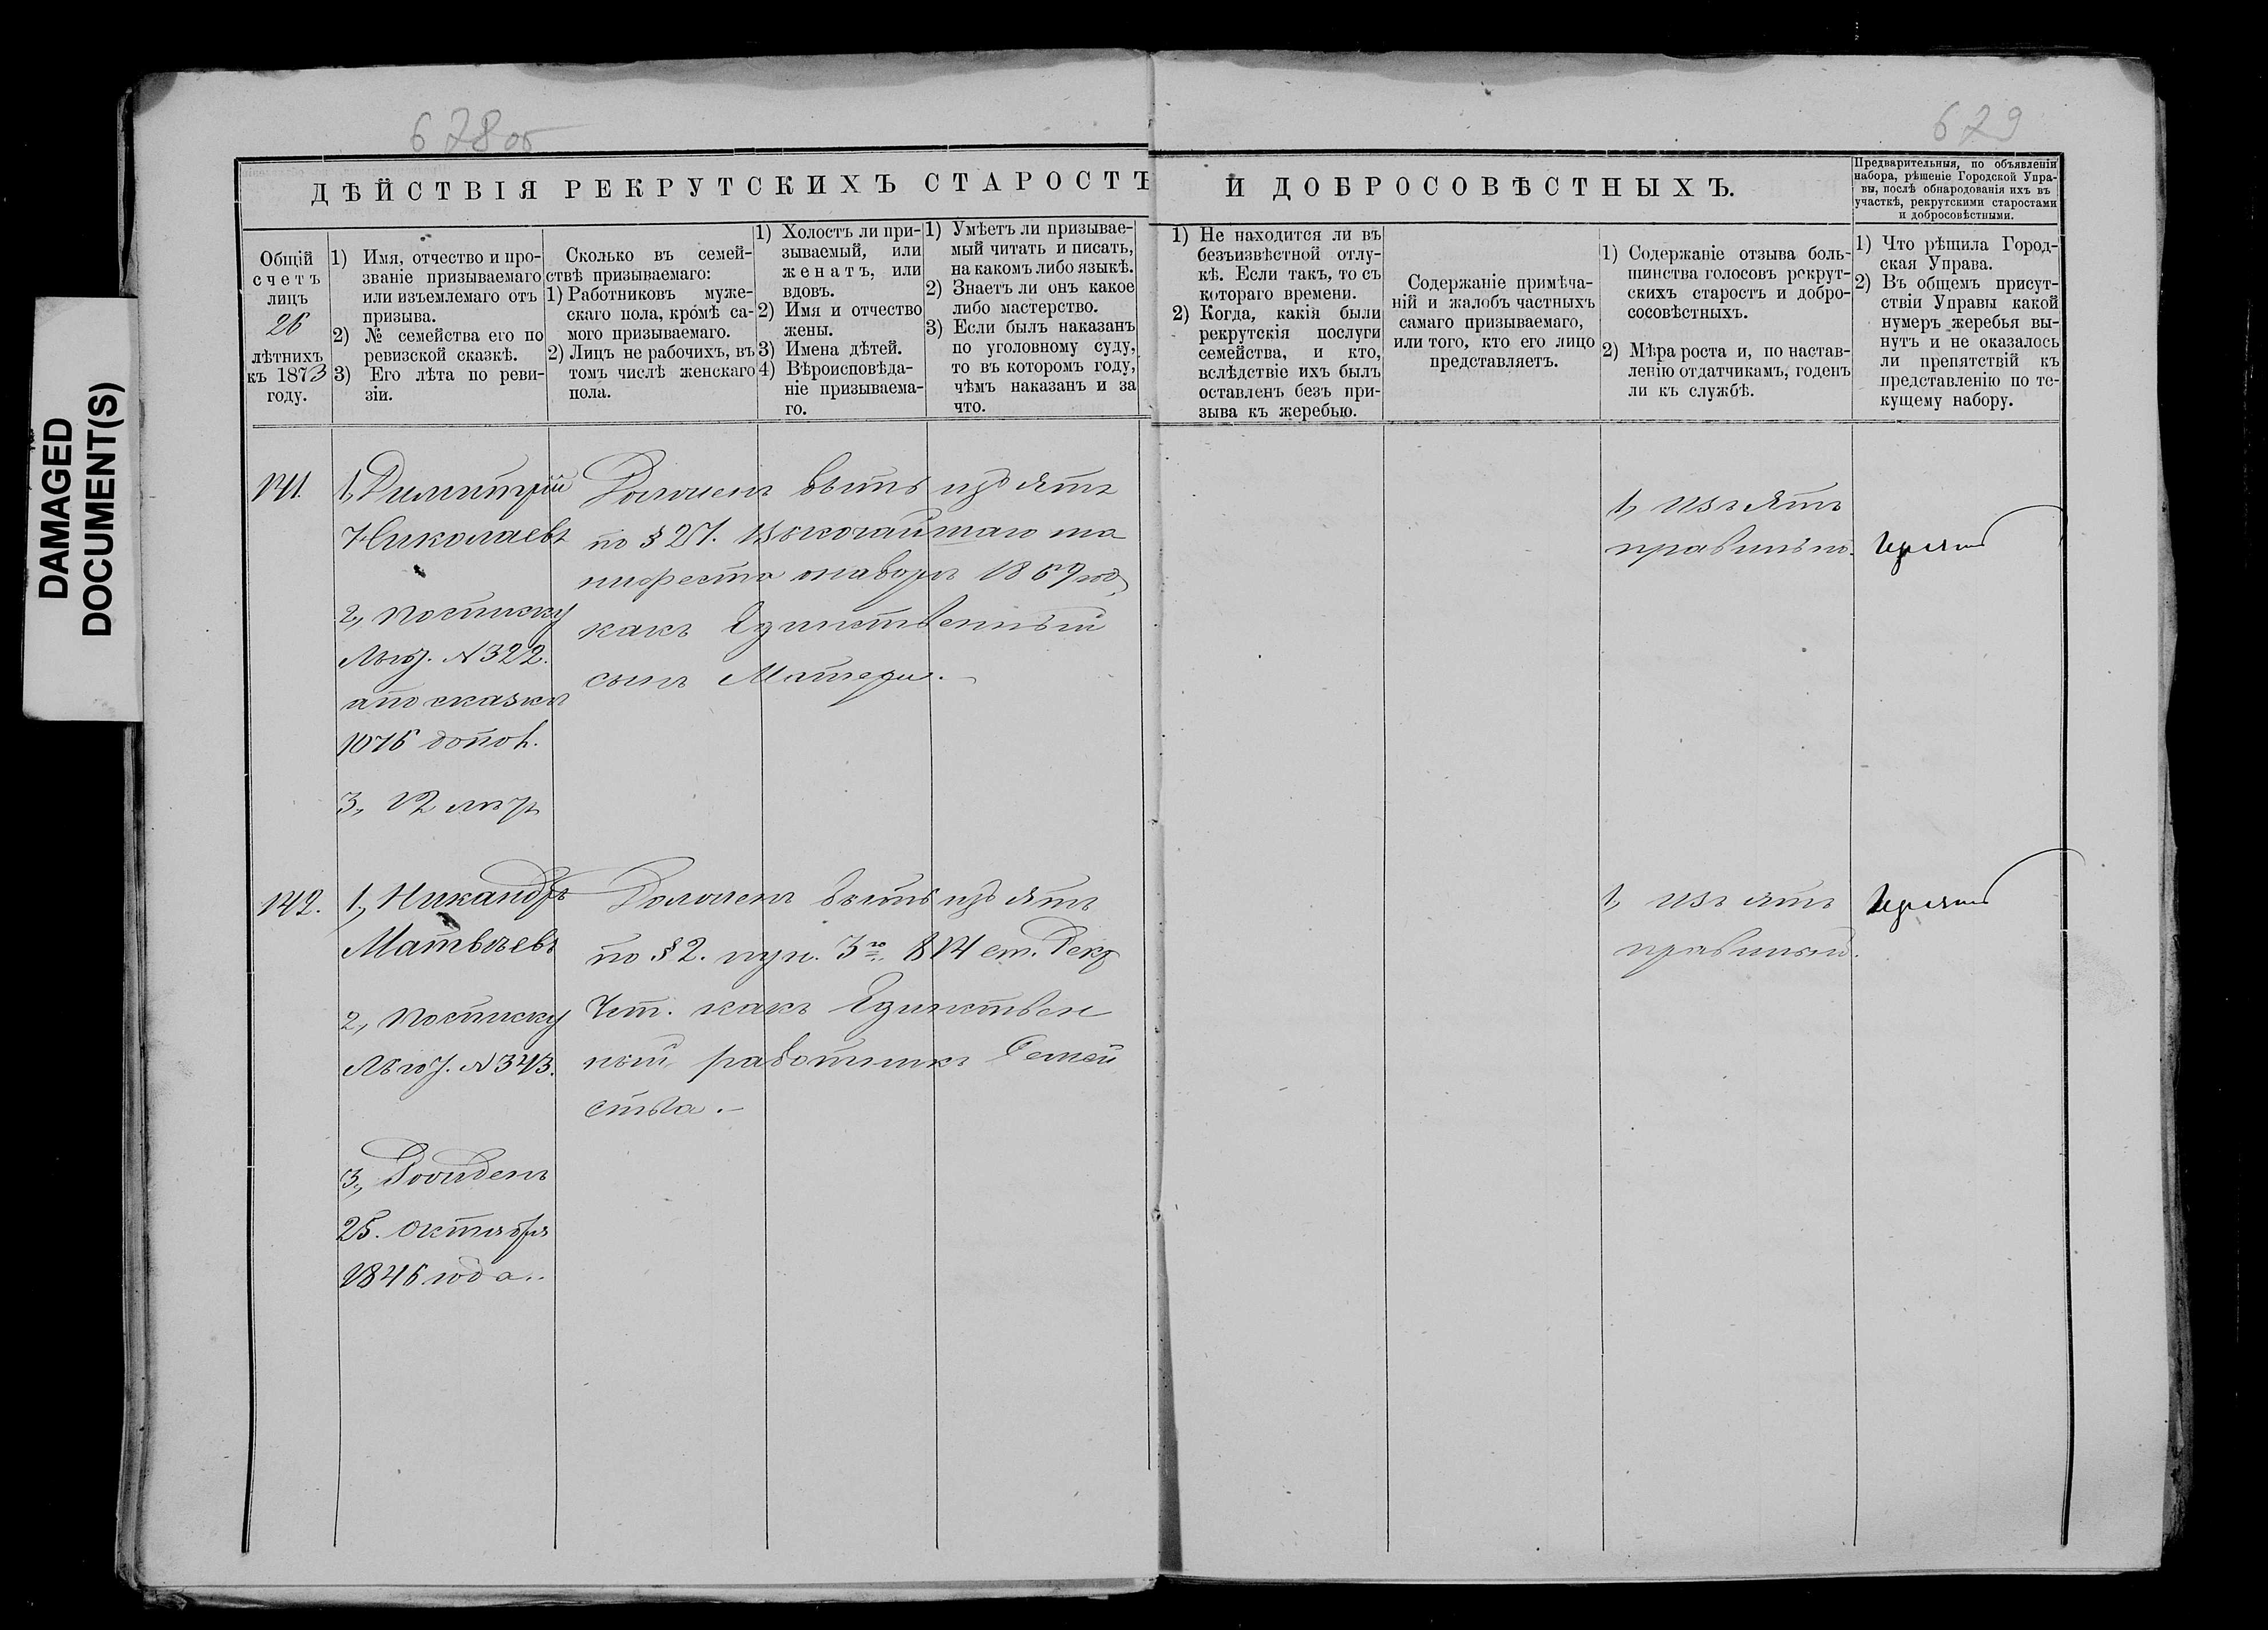 DAMAGED
DOCUMENT(S)
678 об
629
ДѢЙСТВІЯ РЕКРУТСКИХЪ СТАРОСТЪ И ДОБРОСОВѢСТНЫХЪ.
Предварительныя, по объявленіи
набора, рѣшеніе Городской Упра-
вы, послѣ обнародованія ихъ въ
участкѣ, рекрутскими старостами
и добросовѣстными.
Общій
счетъ
лицъ
26
лѣтнихъ
къ 1873
году.
1) Имя, отчество и про-
званіе призываемаго
или изъемлемаго отъ
призыва.
2) № семейства его по
ревизской сказкѣ.
3) Его лѣта по реви-
зіи.
Сколько въ семей-
ствѣ призываемаго:
1) Работниковъ муже-
скаго пола, кромѣ са-
мого призываемаго.
2) Лицъ не рабочихъ, въ
томъ числѣ женскаго
пола.
1) Холостъ ли при-
зываемый, или
женатъ, или
вдовъ.
2) Имя и отчество
жены.
3) Имена дѣтей.
4) Вѣроисповѣда-
ніе призываема-
го.
1) Умѣетъ ли призывае-
мый читать и писать,
на какомъ либо языкѣ.
2) Знаетъ ли онъ какое
либо мастерство.
3) Если былъ наказанъ
по уголовному суду,
то въ которомъ году,
чѣмъ наказанъ и за
что.
1) Не находится ли въ
безъизвѣстной отлу-
кѣ. Если такъ, то съ
котораго времени.
2) Когда, какія были
рекрутскія послуги
семейства, и кто,
вслѣдствіе ихъ былъ
оставленъ безъ при-
зыва къ жеребью.
Содержаніе примѣча-
ній и жалобъ частныхъ
самаго призываемаго,
или того, кто его лицо
представляетъ.
1) Содержаніе отзыва боль-
шинства голосовъ рекрут-
скихъ старостъ и добро-
совѣстныхъ.
2) Мѣра роста и, по настав-
ленію отдатчикамъ, годенъ
ли къ службѣ.
1) Что рѣшила Город-
ская Управа.
2) Въ общемъ присут-
ствіи Управы какой
нумеръ жеребья вы-
нутъ и не оказалось
ли препятствій къ
представленію по те-
кущему набору.
141.
1, Димитрій
Николаевъ
2, по списку
Льгот. N 322.
а по сказкѣ
1076 допол.
3, 12 лѣтъ
Долженъ быть изъятъ
по § 27. Высочайшаго ма
нифеста о наборѣ 1869 год,
какъ Единственный
сынъ Матери.
1, изъятъ
правильно.
Изъятъ
142.
1, Никандръ
Матвѣевъ
2, по списку
Льгот. N 343.
3, Рожденъ
25. Октября
1846 года.
Долженъ быть изъятъ
по § 2. пун. 3го 814 ст. Рекр
Уст. какъ Единствен
ный работникъ Семей
ства.
1, изъятъ
правильно.
Изъятъ